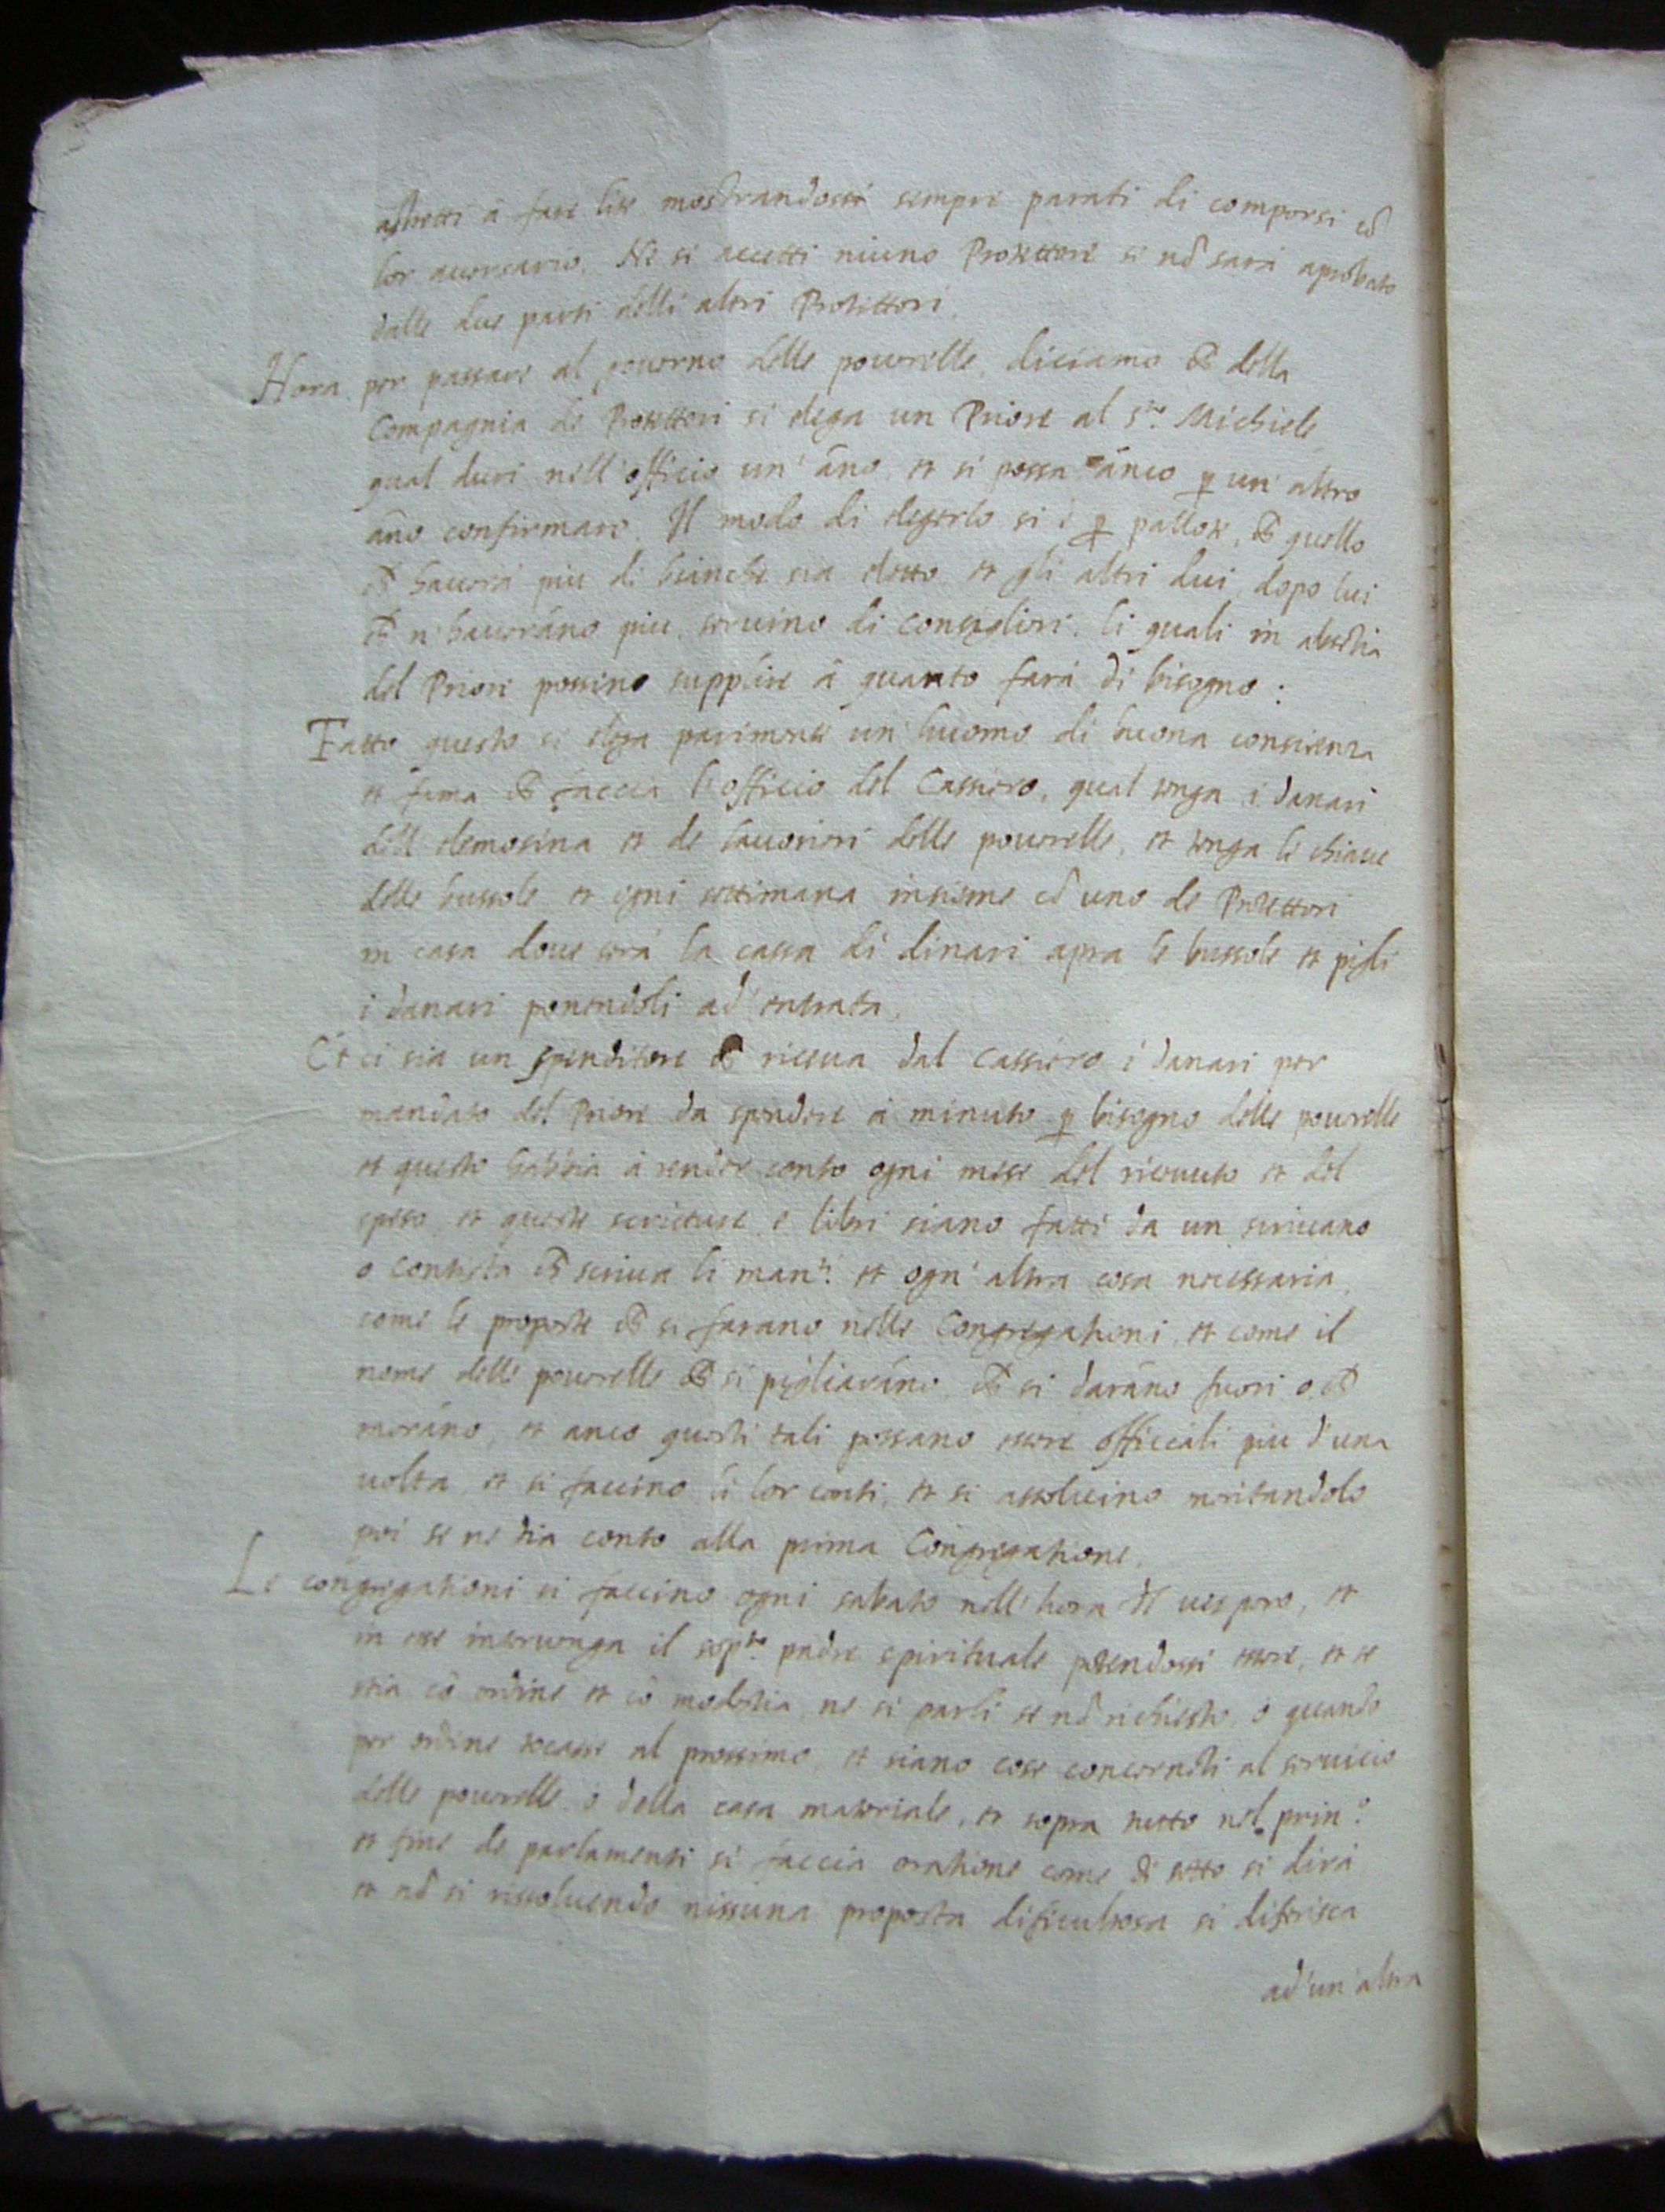 astretti à fare lite mostrandossi sempre parati di comporsi cō
lor auersario. Ne si accetti niuno Protettore si nō sarà aprobato
dalle due parti delli altri Protettori.
Hora per passare al gouerno delle pouerelle, diciamo ch̄ della
Compagnia de Protettori si elega un Priore al sto Michiele
qual duri nell'officio un' āno, et si possa ānco ꝑ un' altro
āno confirmare. Il modo di elegerlo si è ꝑ pallote, ch̄ quello
ch̄ hauerà piu di bianche sia eletto et gli altri dui dopo lui
ch̄ n'hauerāno piu seruino di consiglieri, li quali in absētia
del Priore possino supplire à quanto farà di bisogno:
Fatto questo si elega parimente un' huomo di buona conscienza
et fama ch̄ faccia l'officio del Cassiero, qual tenga i danari
dell'elemosina et de lauorieri delle pouerelle, et tenga le chiaue
delle bussole et ogni settimana insieme cō uno de Protettori
in casa doue serà la cassa di dinari apra le bussole et pigli
i danari ponendoli ad' entrata.
Et ci sia un spenditore ch̄ riceua dal cassiero i danari per
mandato del Priore da spendere à minuto ꝑ bisogno delle pouerelle
et questo habbia à render conto ogni mese del riceuuto et del
speso et queste scritture e libri siano fatti da un scriuano
o contista ch̄ scriua li manti et ogn'altra cosa necessaria,
come le proposte ch̄ si farano nelle Congregationi, et come il
nome delle pouerelle ch̄ si pigliarāno, ch̄ si darāno fuori o ch̄
morāno, et anco questi tali possano essere officiali piu d'una
uolta et si faccino li lor conti, et si assoluino meritandolo
poi se ne dia conto alla prima Congregatione.
Le congregationi si faccino ogni sabato nell'hora del uespero, et
in esse interuenga il sopto padre spirituale potendossi essere, et se
stia cō ordine et cō modestia, ne si parli se nō richiesto, ò quando
per ordine tocasse al prossimo, et siano cose concernēti al seruicio
delle pouerelle ò della casa materiale, et sopra tutto nel prino
et fine de parlamenti si faccia oratione come di sotto si dirà
et nō si rissoluendo nissuna proposta dificultosa si diferisca
ad'un'altra